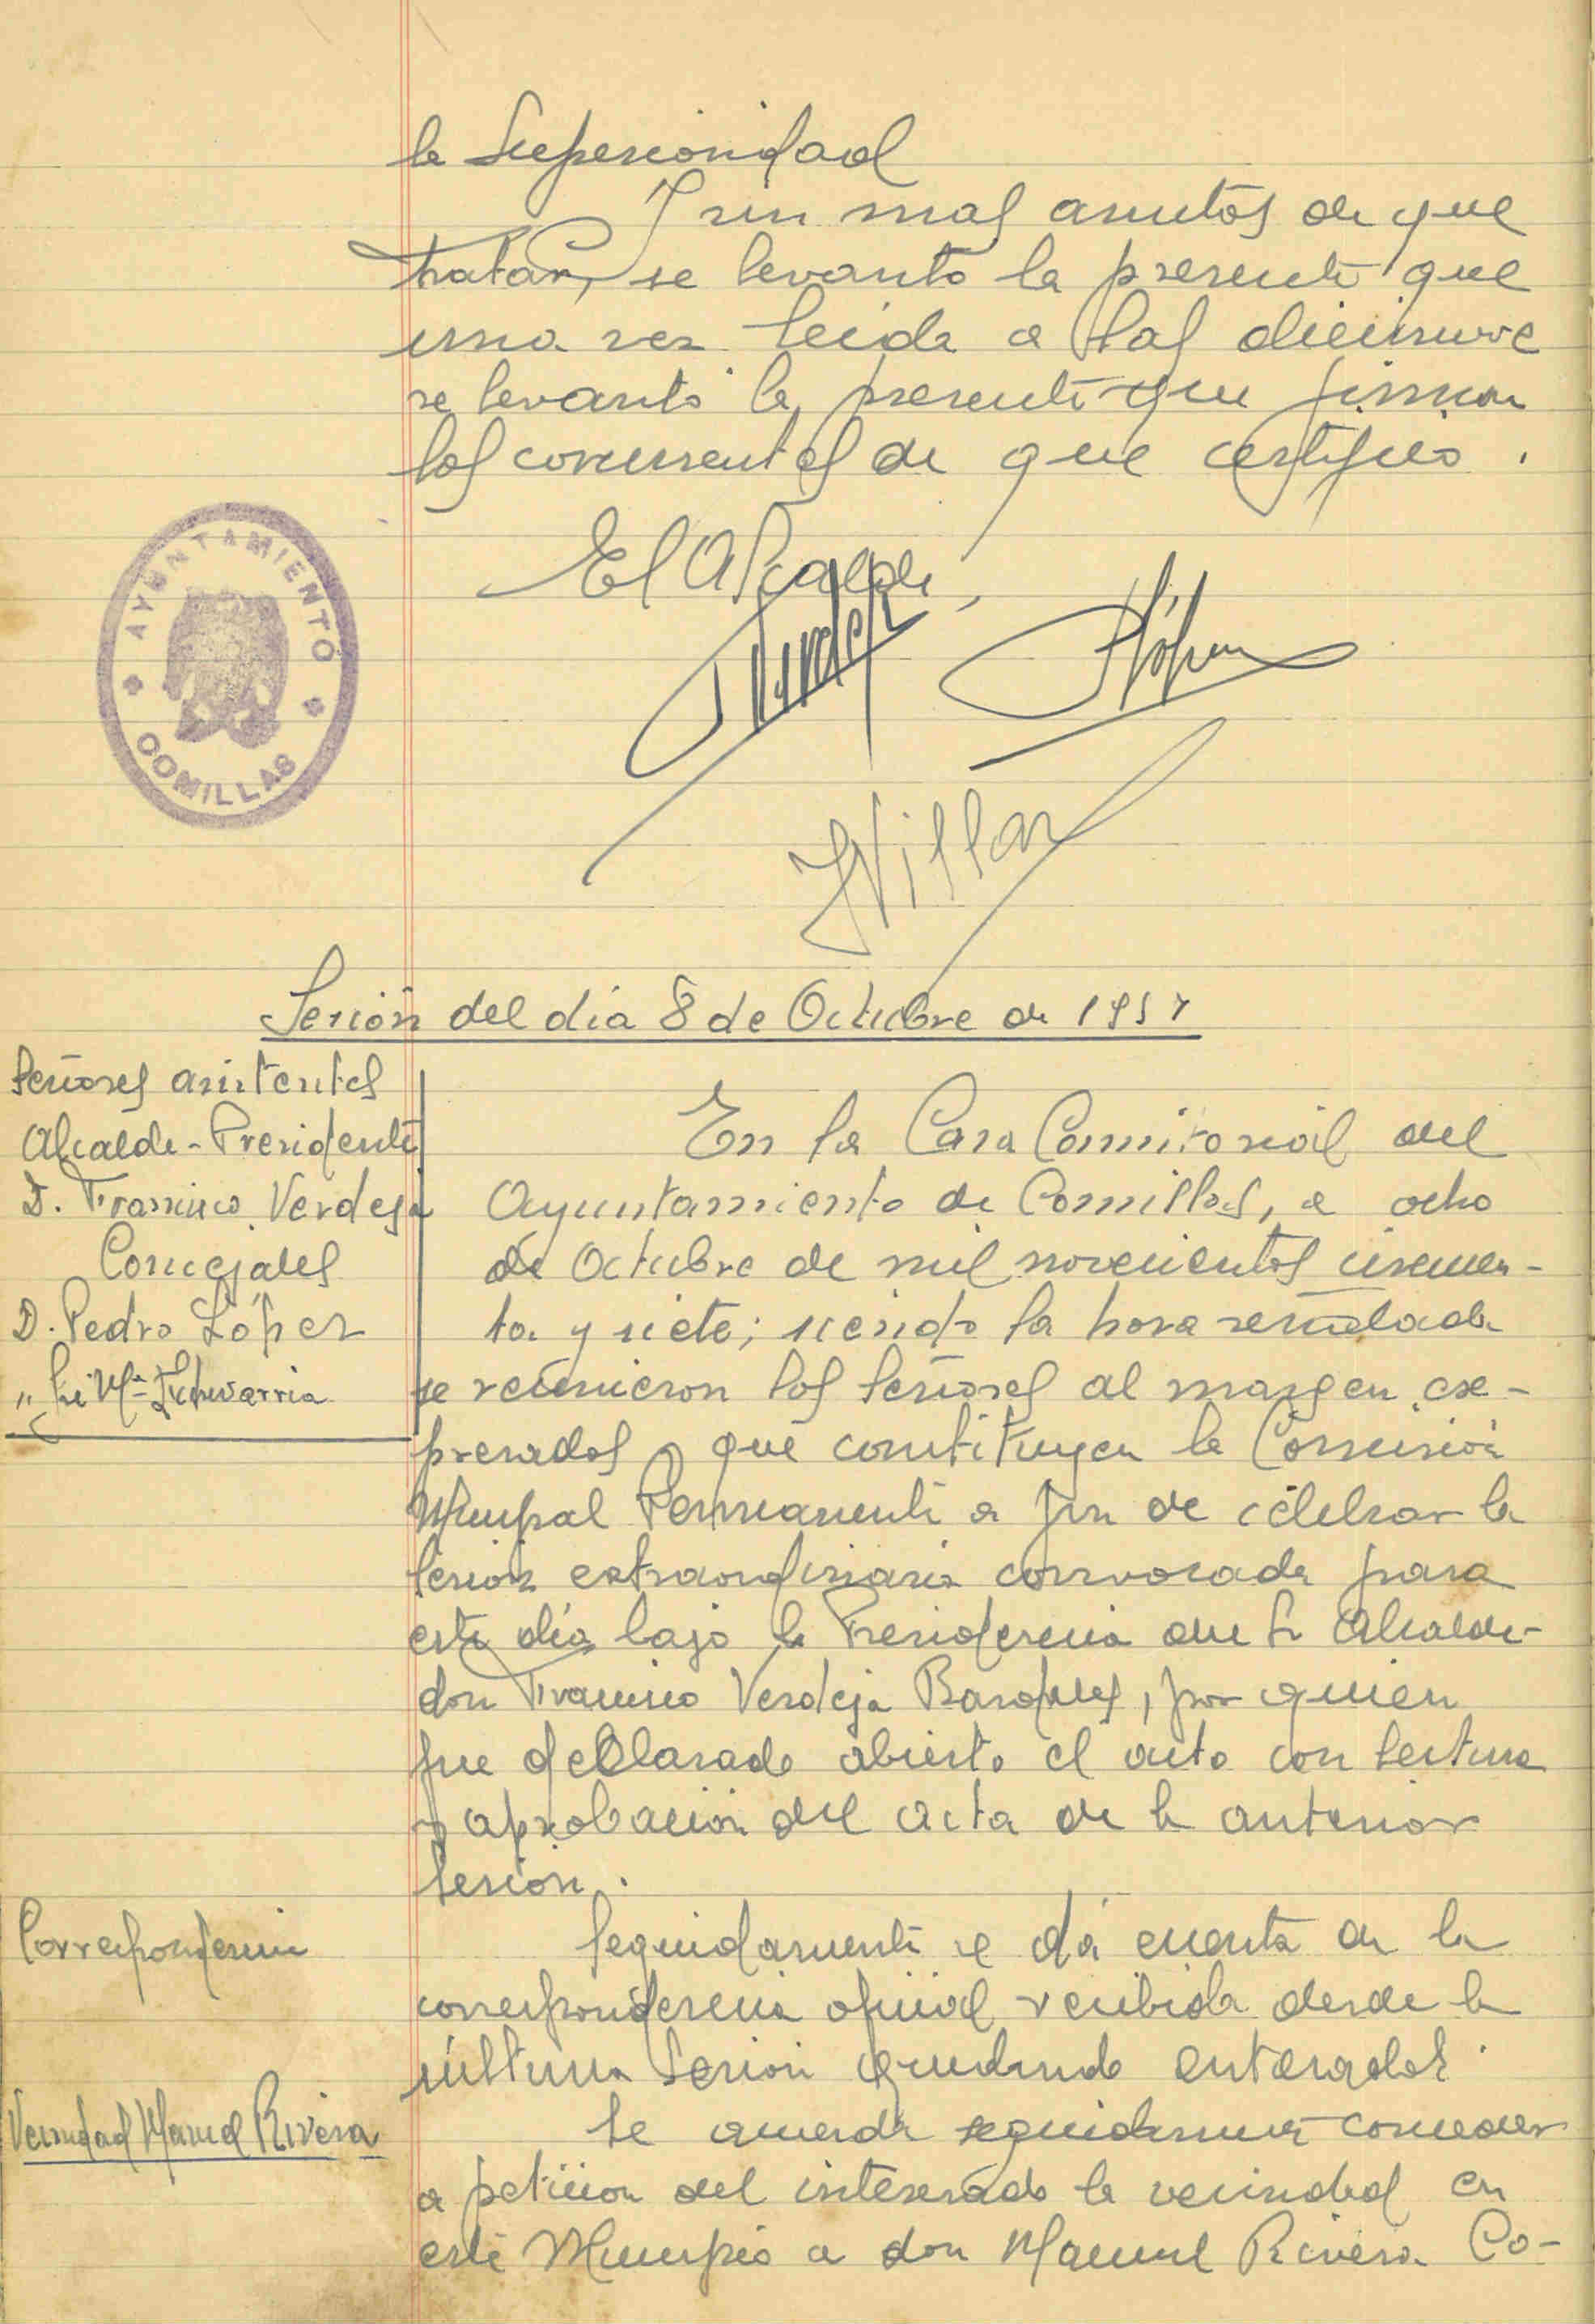 la Superioridad
Y sin mas asuntos de que
tratar, se levanto la presente que
una vez leida a las diecinueve
se levantó la presente que firman
los concurrentes de que certifico.
El Alcalde,
AYUNTAMIENTO
COMILLAS
Verdeja
PLópez
Villar
Sesión del día 8 de Octubre de 1957
Señores asistentes
Alcalde-Presidente
D. Francisco Verdeja
Concejales
D. Pedro López
" José Mª Echevarria
En la Casa Consistorial del
Ayuntamiento de Comillas, a ocho
de Octubre de mil novecientos cincuen-
ta y siete; siendo la hora señalada
se reunieron los Señores al margen ex-
presados y que constituyen la Comisión
Municipal Permanente a fin de celebrar la
Sesion extraordinaria convocada para
este día bajo la Presidencia del Sr Alcalde
don Francisco Verdeja Bardales, por quien
fue declarado abierto el acto con lectura
y aprobación del acta de la anterior
Sesion.
Correspondencia
Seguidamente se dá cuenta de la
correspondencia oficial recibida desde la
última Sesion quedando enterados.
Vecindad Manuel Rivera
Se acuerda seguidamente conceder
a peticion del interesado la vecindad en
este Municipio a don Manuel Rivera Co-